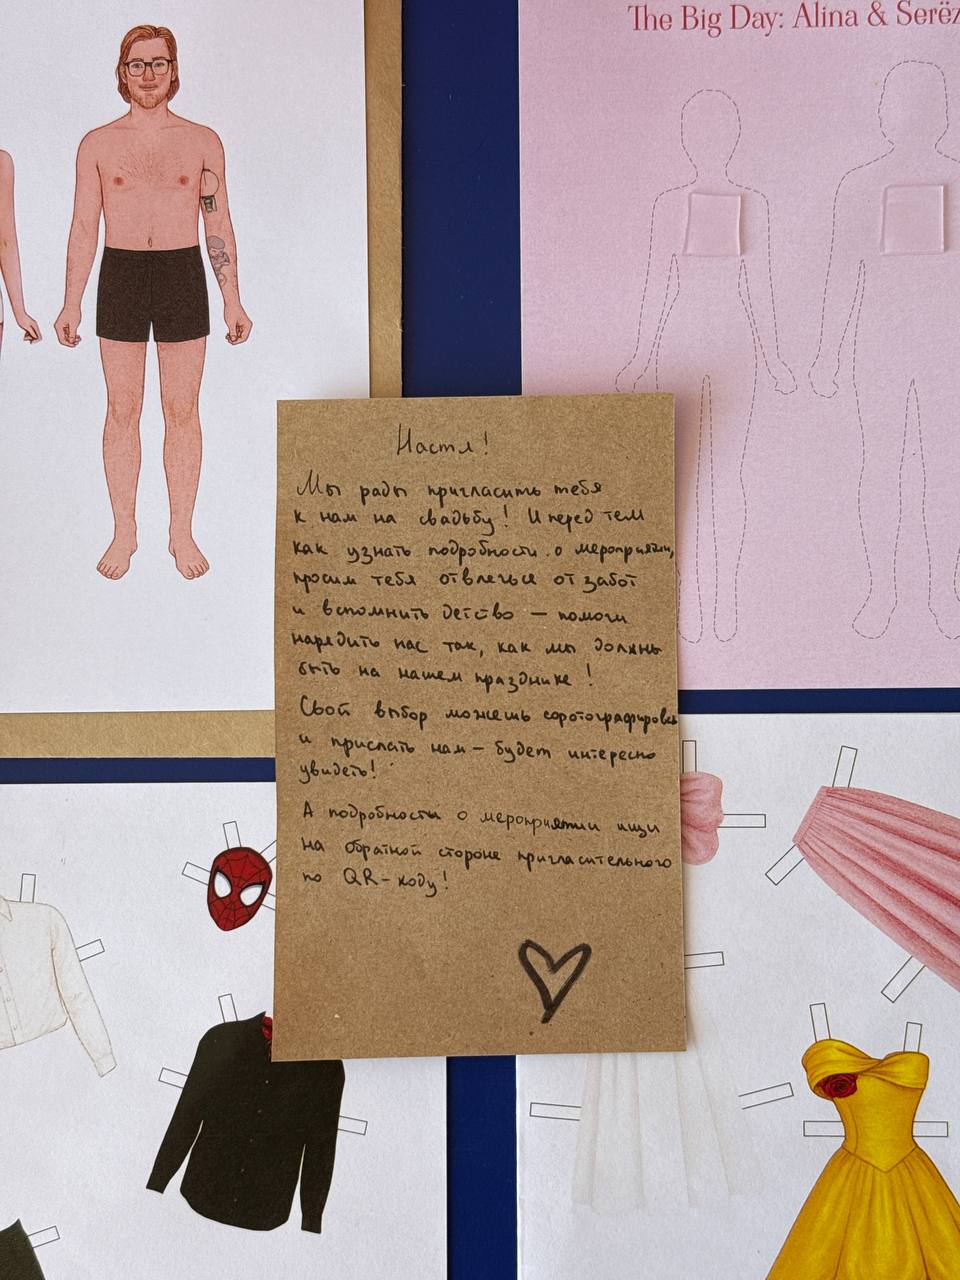 The Big Day: Alina & Serëz
Настя!
Мы рады пригласить тебя
к нам на свадьбу! И перед тем
как узнать подробности о мероприятии,
просим тебя отвлечься от забот
и вспомнить детство — помоги
нарядить нас так, как мы должны
быть на нашем празднике!
Свой выбор можешь
и прислать нам — будет интересно
увидеть!
А подробности о мероприятии ищи
на обратной стороне пригласительного
по QR-коду!